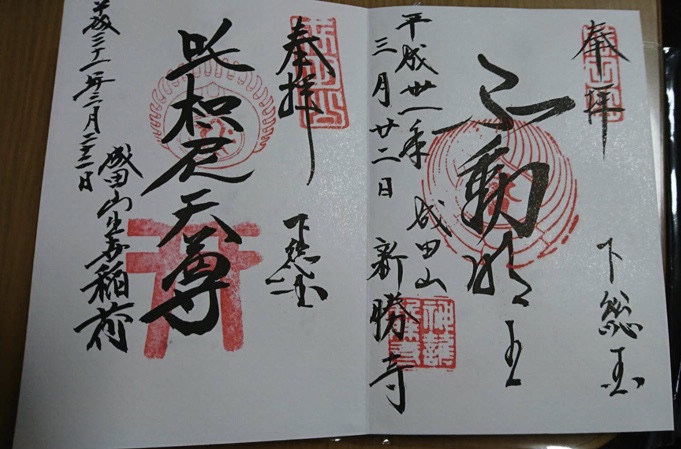 奉拝
下総国
不動明王
平成丗一年
三月廿二日
成田山
新勝寺
奉拝
下総国
吒枳尼天尊
平成三十一年三月二十二日
成田山出世稲荷